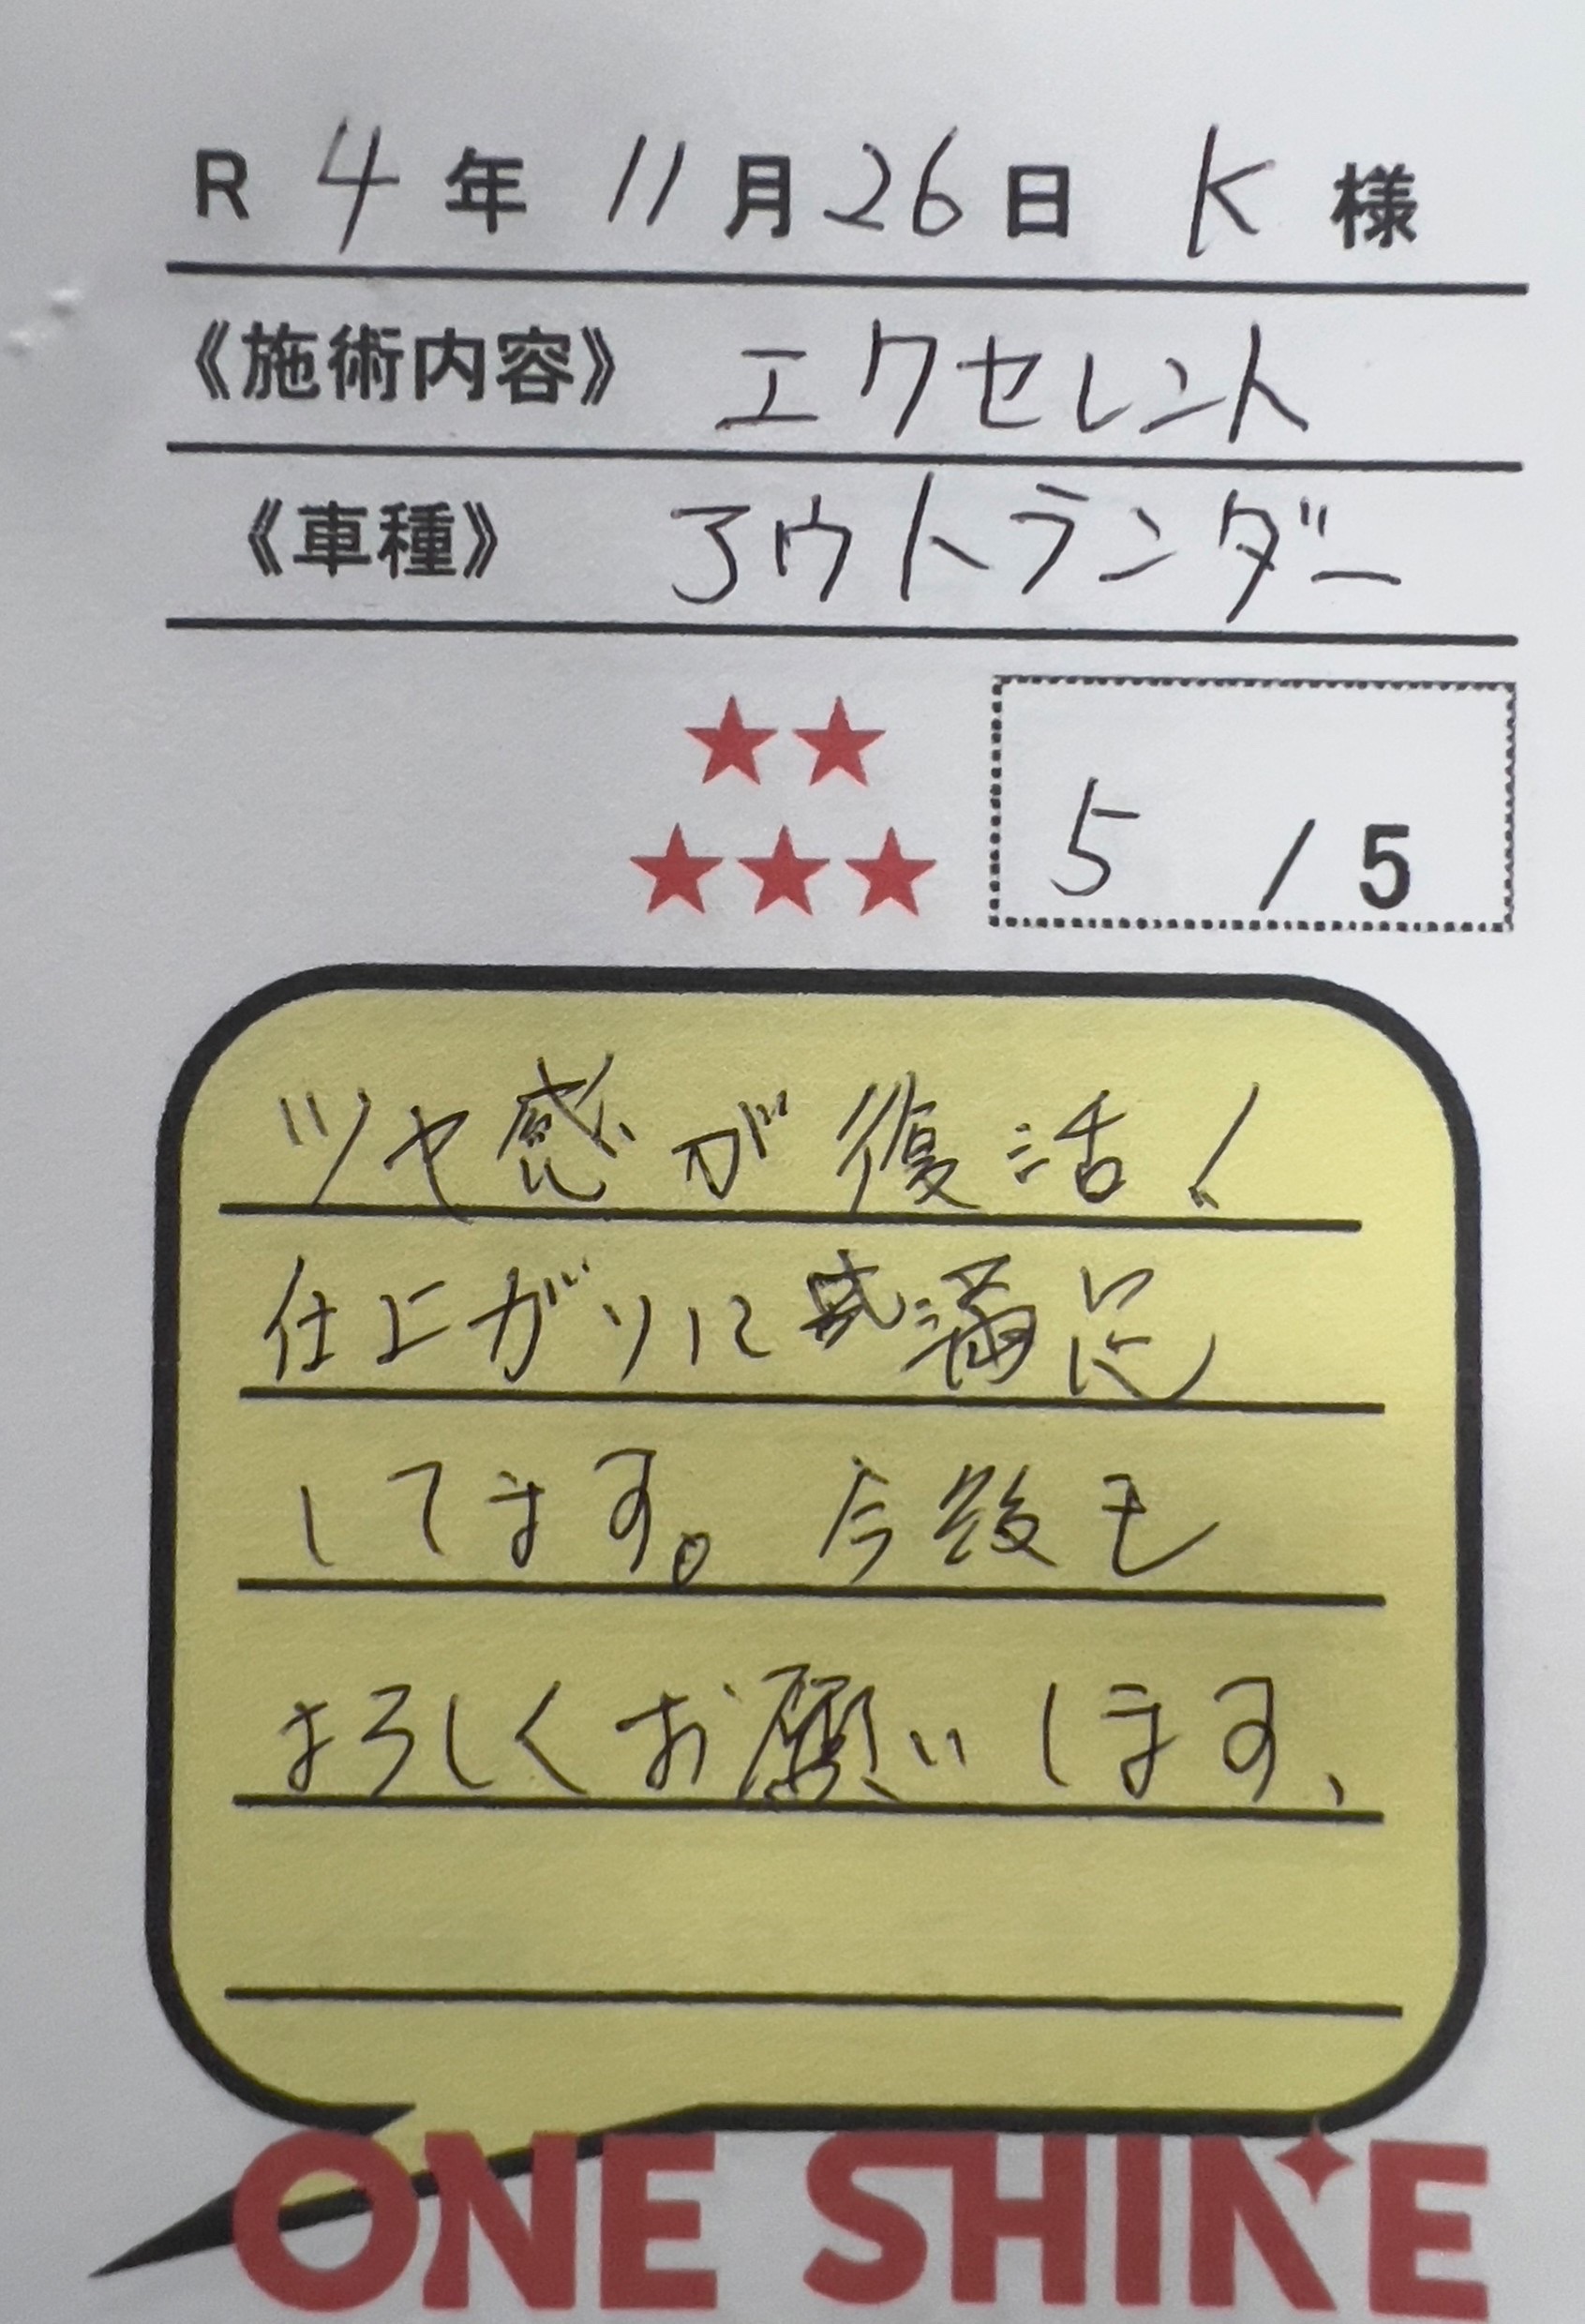 R 4 年 11 月 26 日 K 様
《施術内容》 エクセレント
《車種》 アウトランダー
5 / 5
ツヤ感が復活!
仕上がりに満足
してます。今後も
よろしくお願いします、
ONE SHINE